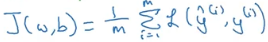 J(ω,b) = 1/m ∑_{i=1}^{m} ℒ(ŷ^{(i)}, y^{(i)})